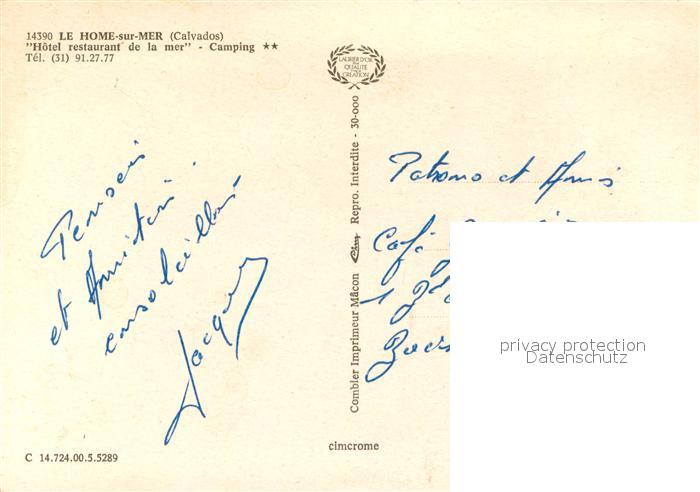 14390 LE HOME-sur-MER (Calvados)
"Hôtel restaurant de la mer" - Camping ★★
Tél. (31) 91.27.77
LAURIER D'OR
DE LA
QUALITÉ
CRÉATION
Combier Imprimeur Mâcon Repro. Interdite - 30-000
Pensées
et Amitiés
ensoleillées
Jacques
Patrons et Amis
Café
1 Bd
privacy protection
Datenschutz
cimcrome
C 14.724.00.5.5289